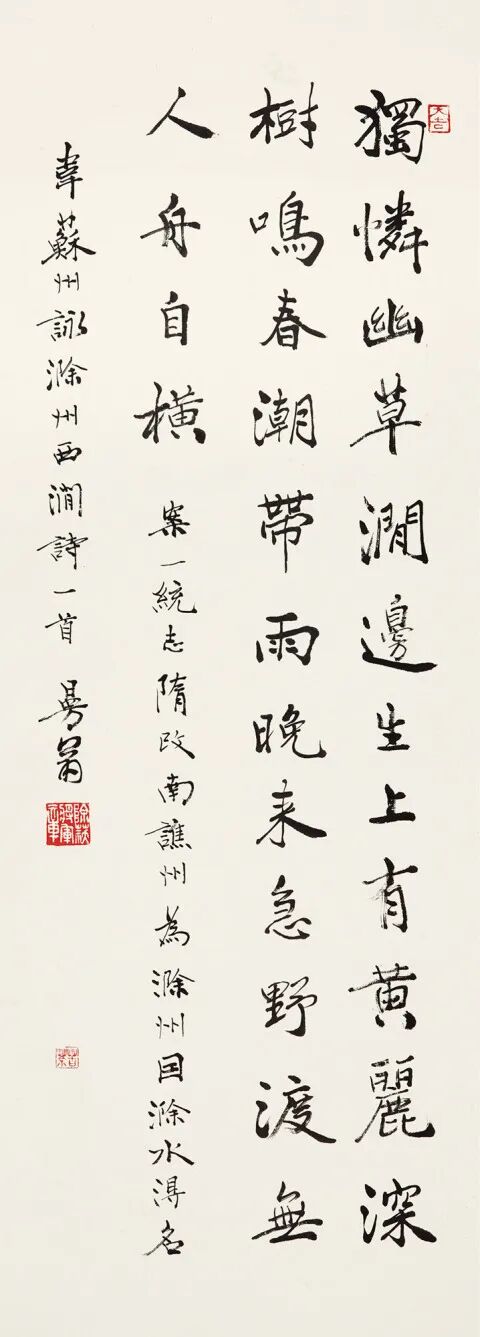 獨憐幽草澗邊生上有黃麗深
樹鳴春潮帶雨晚来急野渡無
人舟自橫 案一統志隋改南譙州為滁州因滁水得名
韋蘇州詠滁州西澗詩一首 曼翁